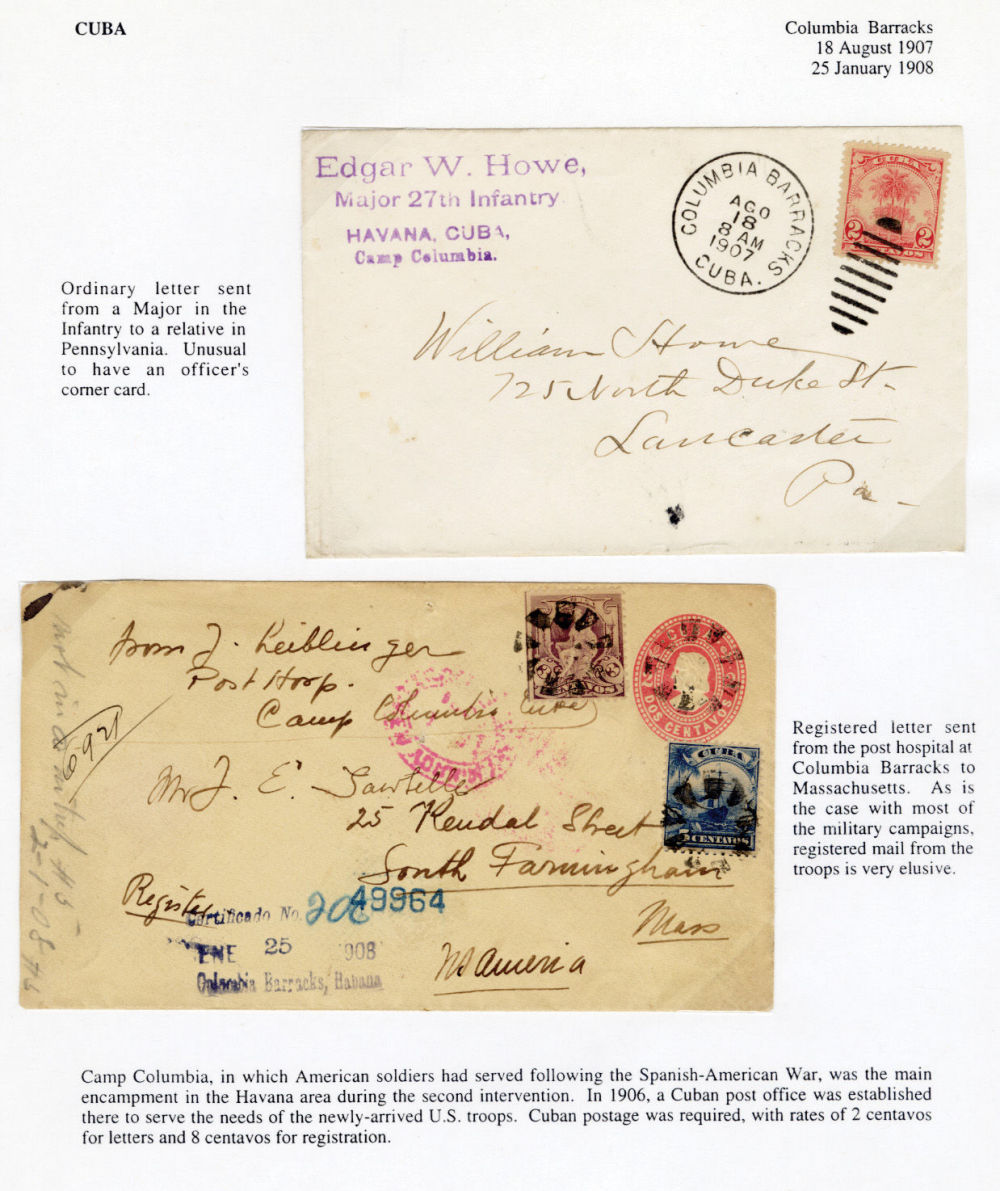 CUBA
Columbia Barracks
18 August 1907
25 January 1908
Edgar W. Howe,
Major 27th Infantry
HAVANA, CUBA,
Camp Columbia.
COLUMBIA BARRACKS
AGO
18
8 AM
1907
CUBA.
CUBA
2 2
CENTAVOS
Ordinary letter sent
from a Major in the
Infantry to a relative in
Pennsylvania. Unusual
to have an officer's
corner card.
William Howe
725 North Duke St-
Lancaster
Pa-
from J. Keiblinger
Post Hosp.
Camp Columbia Cuba
CUBA
DOS CENTAVOS
6921
Mr J. E. Sawtelle
25 Kendal Street
South Farmingham
Mass
CUBA
5 CENTAVOS
Register
Certificado No. 208
49964
ENE 25 908
Columbia Barracks, Habana
America
2-1-08
Registered letter sent
from the post hospital at
Columbia Barracks to
Massachusetts. As is
the case with most of
the military campaigns,
registered mail from the
troops is very elusive.
Camp Columbia, in which American soldiers had served following the Spanish-American War, was the main
encampment in the Havana area during the second intervention. In 1906, a Cuban post office was established
there to serve the needs of the newly-arrived U.S. troops. Cuban postage was required, with rates of 2 centavos
for letters and 8 centavos for registration.